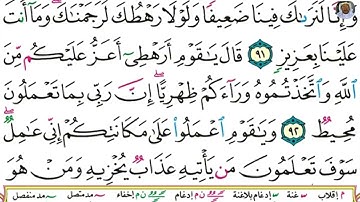 وَإِنَّا لَنَرَىٰكَ فِينَا ضَعِيفًا وَلَوْلَا رَهْطُكَ لَرَجَمْنَٰكَ وَمَآ أَنتَ
عَلَيْنَا بِعَزِيزٍ ٩١ قَالَ يَٰقَوْمِ أَرَهْطِىٓ أَعَزُّ عَلَيْكُم مِّنَ
ٱللَّهِ وَٱتَّخَذْتُمُوهُ وَرَآءَكُمْ ظِهْرِيًّا إِنَّ رَبِّى بِمَا تَعْمَلُونَ
مُحِيطٌ ٩٢ وَيَٰقَوْمِ ٱعْمَلُوا۟ عَلَىٰ مَكَانَتِكُمْ إِنِّى عَٰمِلٌ
سَوْفَ تَعْلَمُونَ مَن يَأْتِيهِ عَذَابٌ يُخْزِيهِ وَمَنْ هُوَ
م إقلاب س غنة س إدغام بلاغنة ن م إدغام ن م إخفاء مد متصل مد منفصل